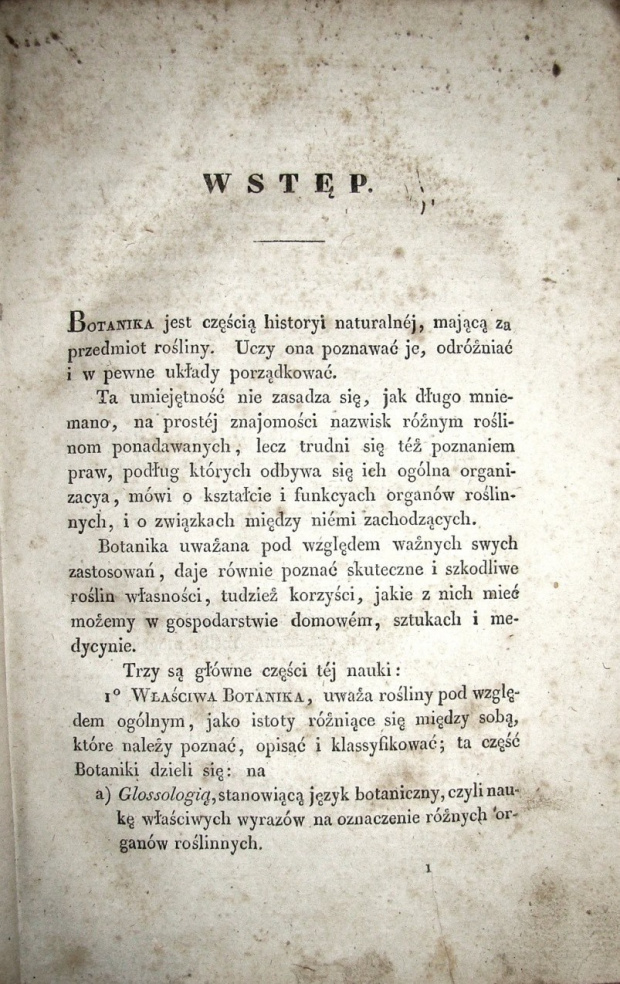 WSTĘP.
BOTANIKA jest częścią historyi naturalnéj, mającą za
przedmiot rośliny. Uczy ona poznawać je, odróżniać
i w pewne układy porządkować.
Ta umiejętność nie zasadza się, jak długo mnie-
mano, na prostéj znajomości nazwisk różnym rośli-
nom ponadawanych, lecz trudni się téż poznaniem
praw, podług których odbywa się ich ogólna organi-
zacya, mówi o kształcie i funkcyach organów roślin-
nych, i o związkach między niémi zachodzących.
Botanika uważana pod względem ważnych swych
zastosowań, daje równie poznać skuteczne i szkodliwe
roślin własności, tudzież korzyści, jakie z nich mieć
możemy w gospodarstwie domowém, sztukach i me-
dycynie.
Trzy są główne części téj nauki:
1° WŁAŚCIWA BOTANIKA, uważa rośliny pod wzglę-
dem ogólnym, jako istoty różniące się między sobą,
które należy poznać, opisać i klassyfikować; ta część
Botaniki dzieli się: na
a) Glossologią, stanowiącą język botaniczny, czyli nau-
kę właściwych wyrazów na oznaczenie różnych or-
ganów roślinnych.
1